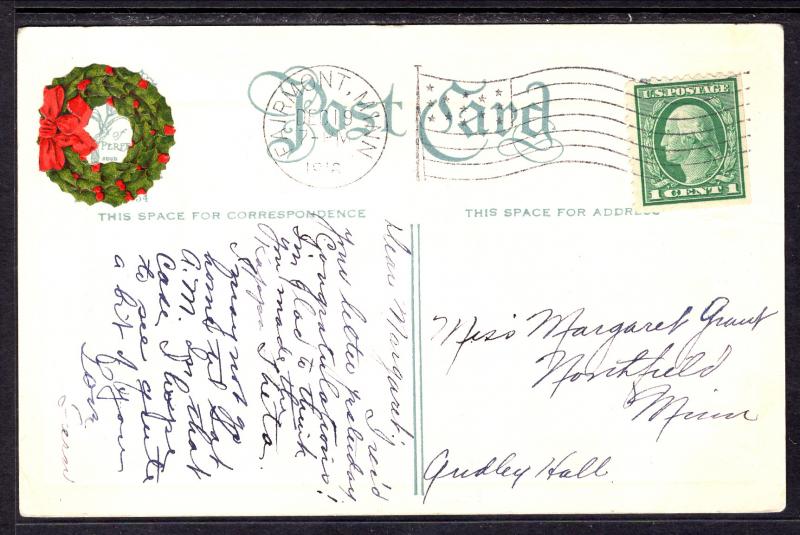 Post Card
FAIRMONT, MINN
DEC 19
U.S. POSTAGE
1 CENT 1
THIS SPACE FOR CORRESPONDENCE
THIS SPACE FOR ADDRESS
Dear Margaret;
I rec'd
your letter yesterday,
Congratulations!
I'm glad to think
you made the
Kappa Theta.
I may not go
home til Sat
A.M. In that
case I hope
to see quite
a bit of you
Love
Fern
Miss Margaret Grant
Northfield
Minn
Gridley Hall.